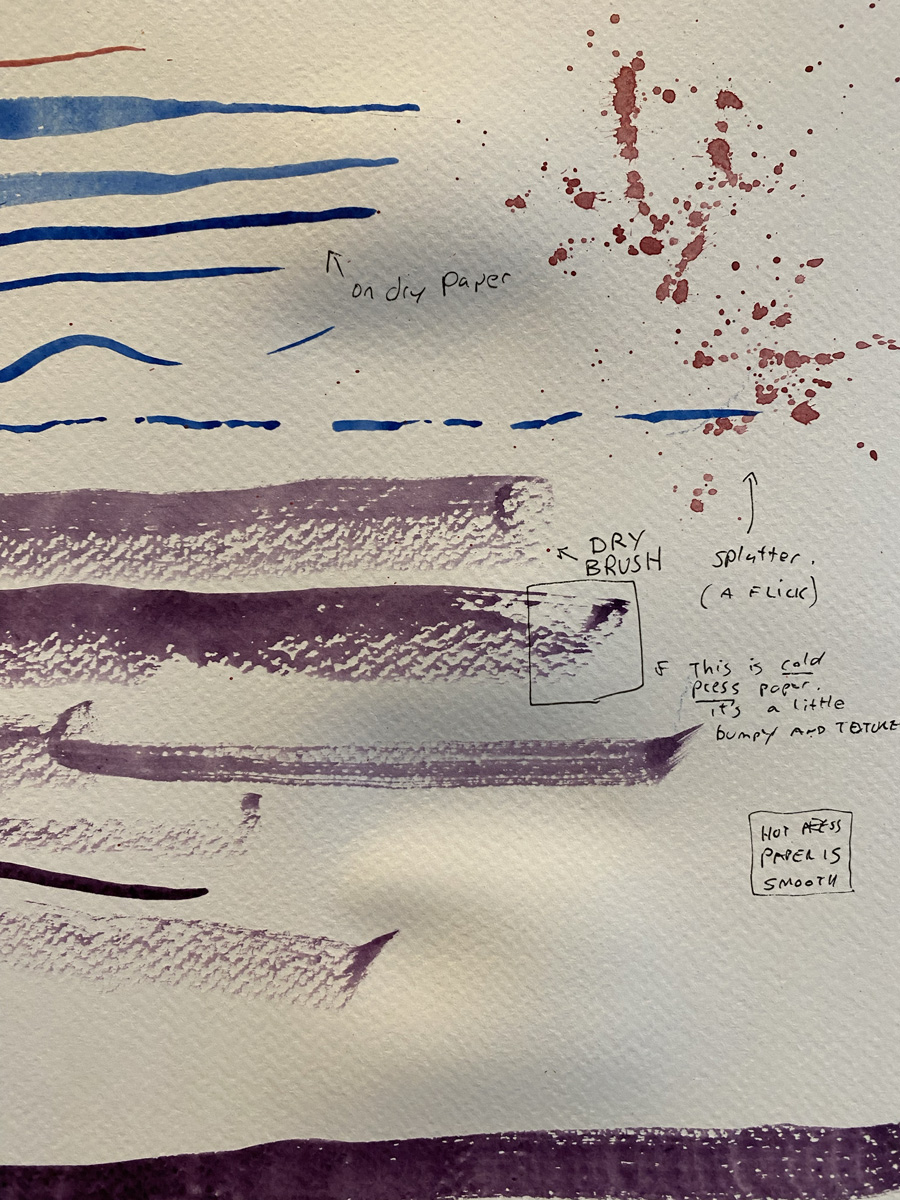 on dry paper
DRY
BRUSH
splatter.
(A FLICK)
This is cold
press paper.
it's a little
bumpy AND
HOT PRESS
PAPER IS
SMOOTH